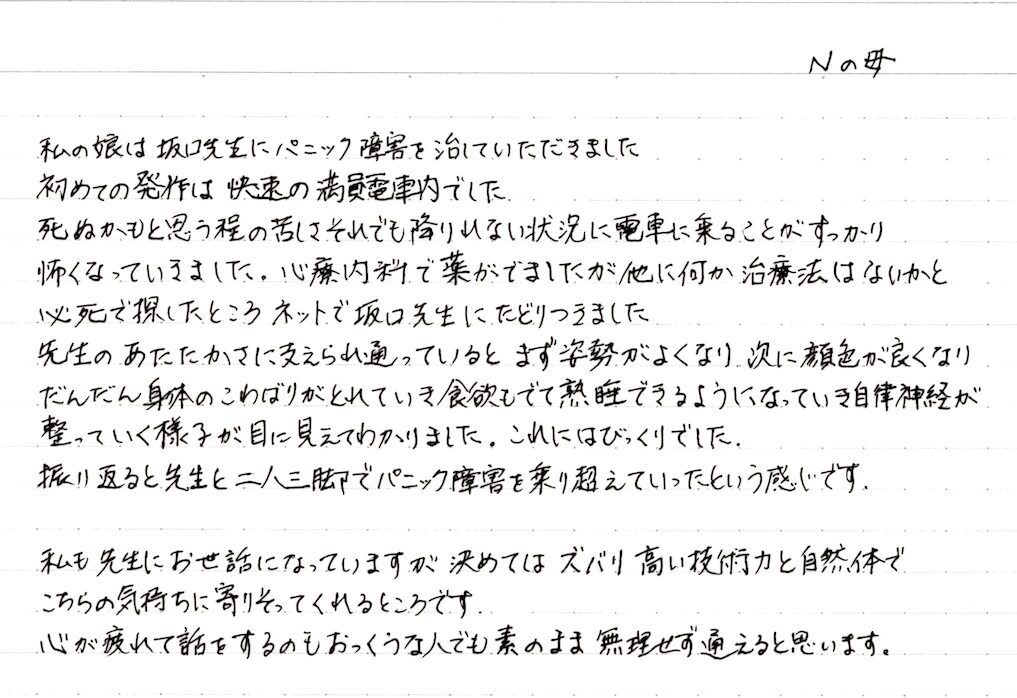 Nの母
私の娘は坂口先生にパニック障害を治していただきました
初めての発作は快速の満員電車内でした.
死ぬかもと思う程の苦しさそれでも降りれない状況に電車に乗ることがすっかり
怖くなっていきました。心療内科で薬がでましたが他に何か治療法はないかと
必死で探したところネットで坂口先生にたどりつきました
先生のあたたかさに支えられ通っていると まず姿勢がよくなり 次に顔色が良くなり
だんだん身体のこわばりがとれていき食欲もでて熟睡できるようになっていき自律神経が
整っていく様子が目に見えてわかりました。これにはびっくりでした.
振り返ると先生と二人三脚でパニック障害を乗り超えていったという感じです.
私も先生にお世話になっていますが 決めては ズバリ 高い技術力と自然体で
こちらの気持ちに寄りそってくれるところです.
心が疲れて話をするのもおっくうな人でも素のまま無理せず通えると思います。